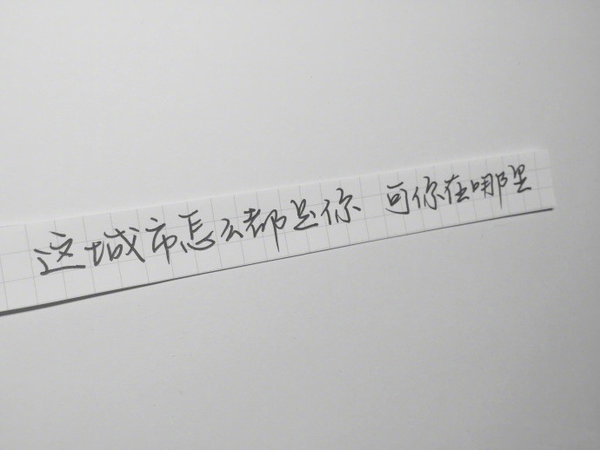 这城市怎么都是你 可你在哪里